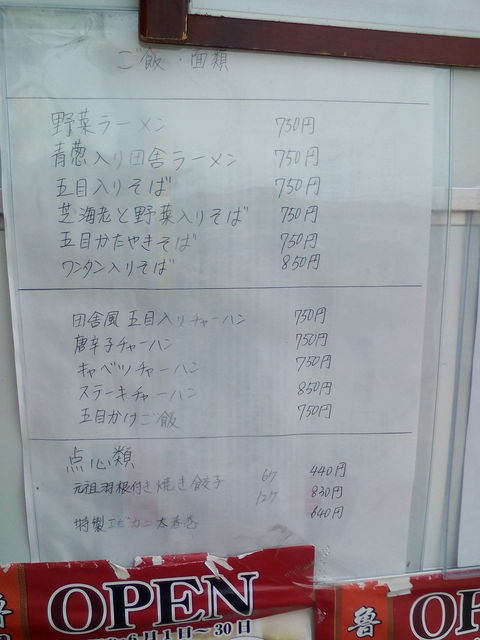 ご飯・面類
野菜ラーメン 750円
青葱入り田舎ラーメン 750円
五目入りそば 750円
芝海老と野菜入りそば 750円
五目かたやきそば 750円
ワンタン入りそば 850円
田舎風五目入りチャーハン 750円
唐辛子チャーハン 750円
キャベツチャーハン 750円
ステーキチャーハン 850円
五目かけご飯 750円
点心類
元祖羽根付き焼き餃子 6ケ 440円
12ケ 830円
特製エビカニ大春巻 640円
OPEN
6月1日〜30日
魯